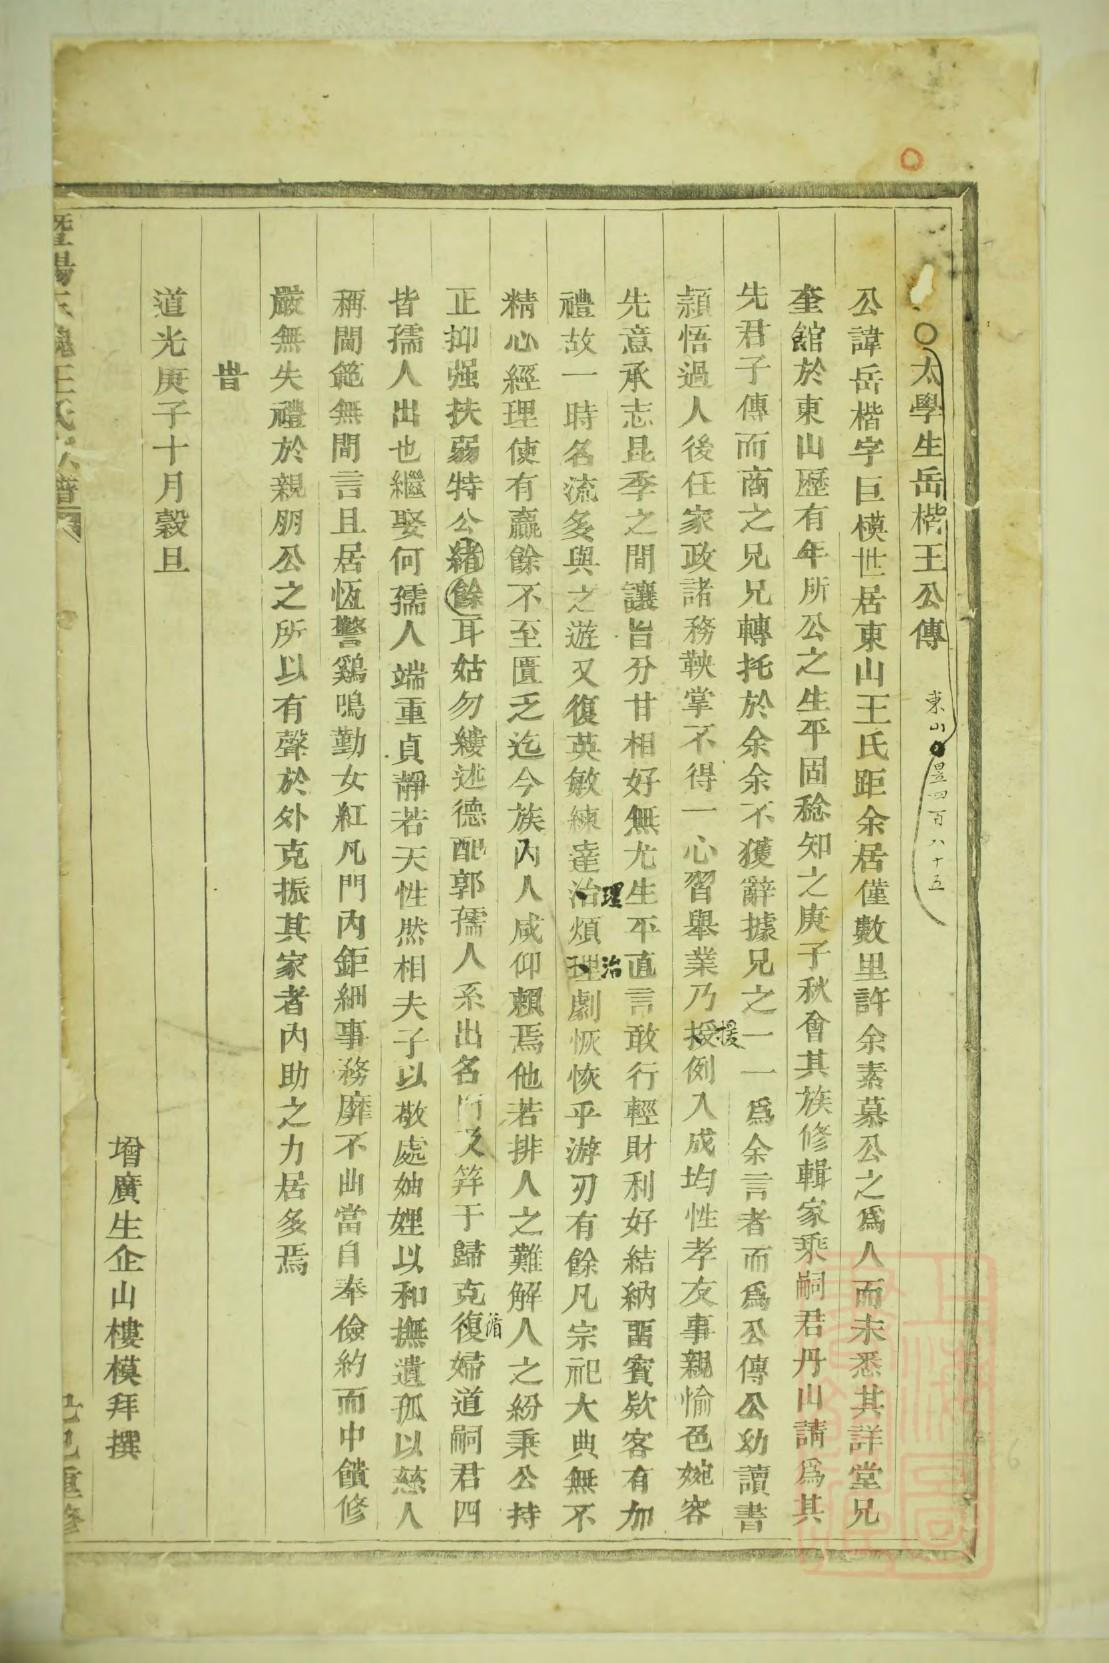 ○太學生岳楷王公傳 東山 昱四百八十五
公諱岳楷字巨模世居東山王氏距余居僅數里許余素慕公之爲人而未悉其詳堂兄
奎館於東山歷有年所公之生平固稔知之庚子秋會其族修輯家乘嗣君丹山請爲其
先君子傳而商之兄兄轉托於余余不獲辭據兄之一一爲余言者而爲公傳公幼讀書
頴悟過人後任家政諸務鞅掌不得一心習舉業乃授例入成均性孝友事親愉色婉容
援
先意承志昆季之間讓旨分甘相好無尤生平直言敢行輕財利好結納畱賓欵客有加
理治
禮故一時名流多與之遊又復英敏練達治煩理劇恢恢乎游刃有餘凡宗祀大典無不
精心經理使有贏餘不至匱乏迄今族內人咸仰賴焉他若排人之難解人之紛秉公持
循
正抑强扶弱特公緒餘耳姑勿縷述德配郭孺人系出名門及笄于歸克復婦道嗣君四
皆孺人出也繼娶何孺人端重貞靜若天性然相夫子以敬處妯娌以和撫遺孤以慈人
稱閫範無間言且居恆警鷄鳴勤女紅凡門內鉅細事務靡不曲當自奉儉約而中饋修
嚴無失禮於親朋公之所以有聲於外克振其家者內助之力居多焉
旹
道光庚子十月穀旦
增廣生企山樓模拜撰
王氏宗譜
己巳重修